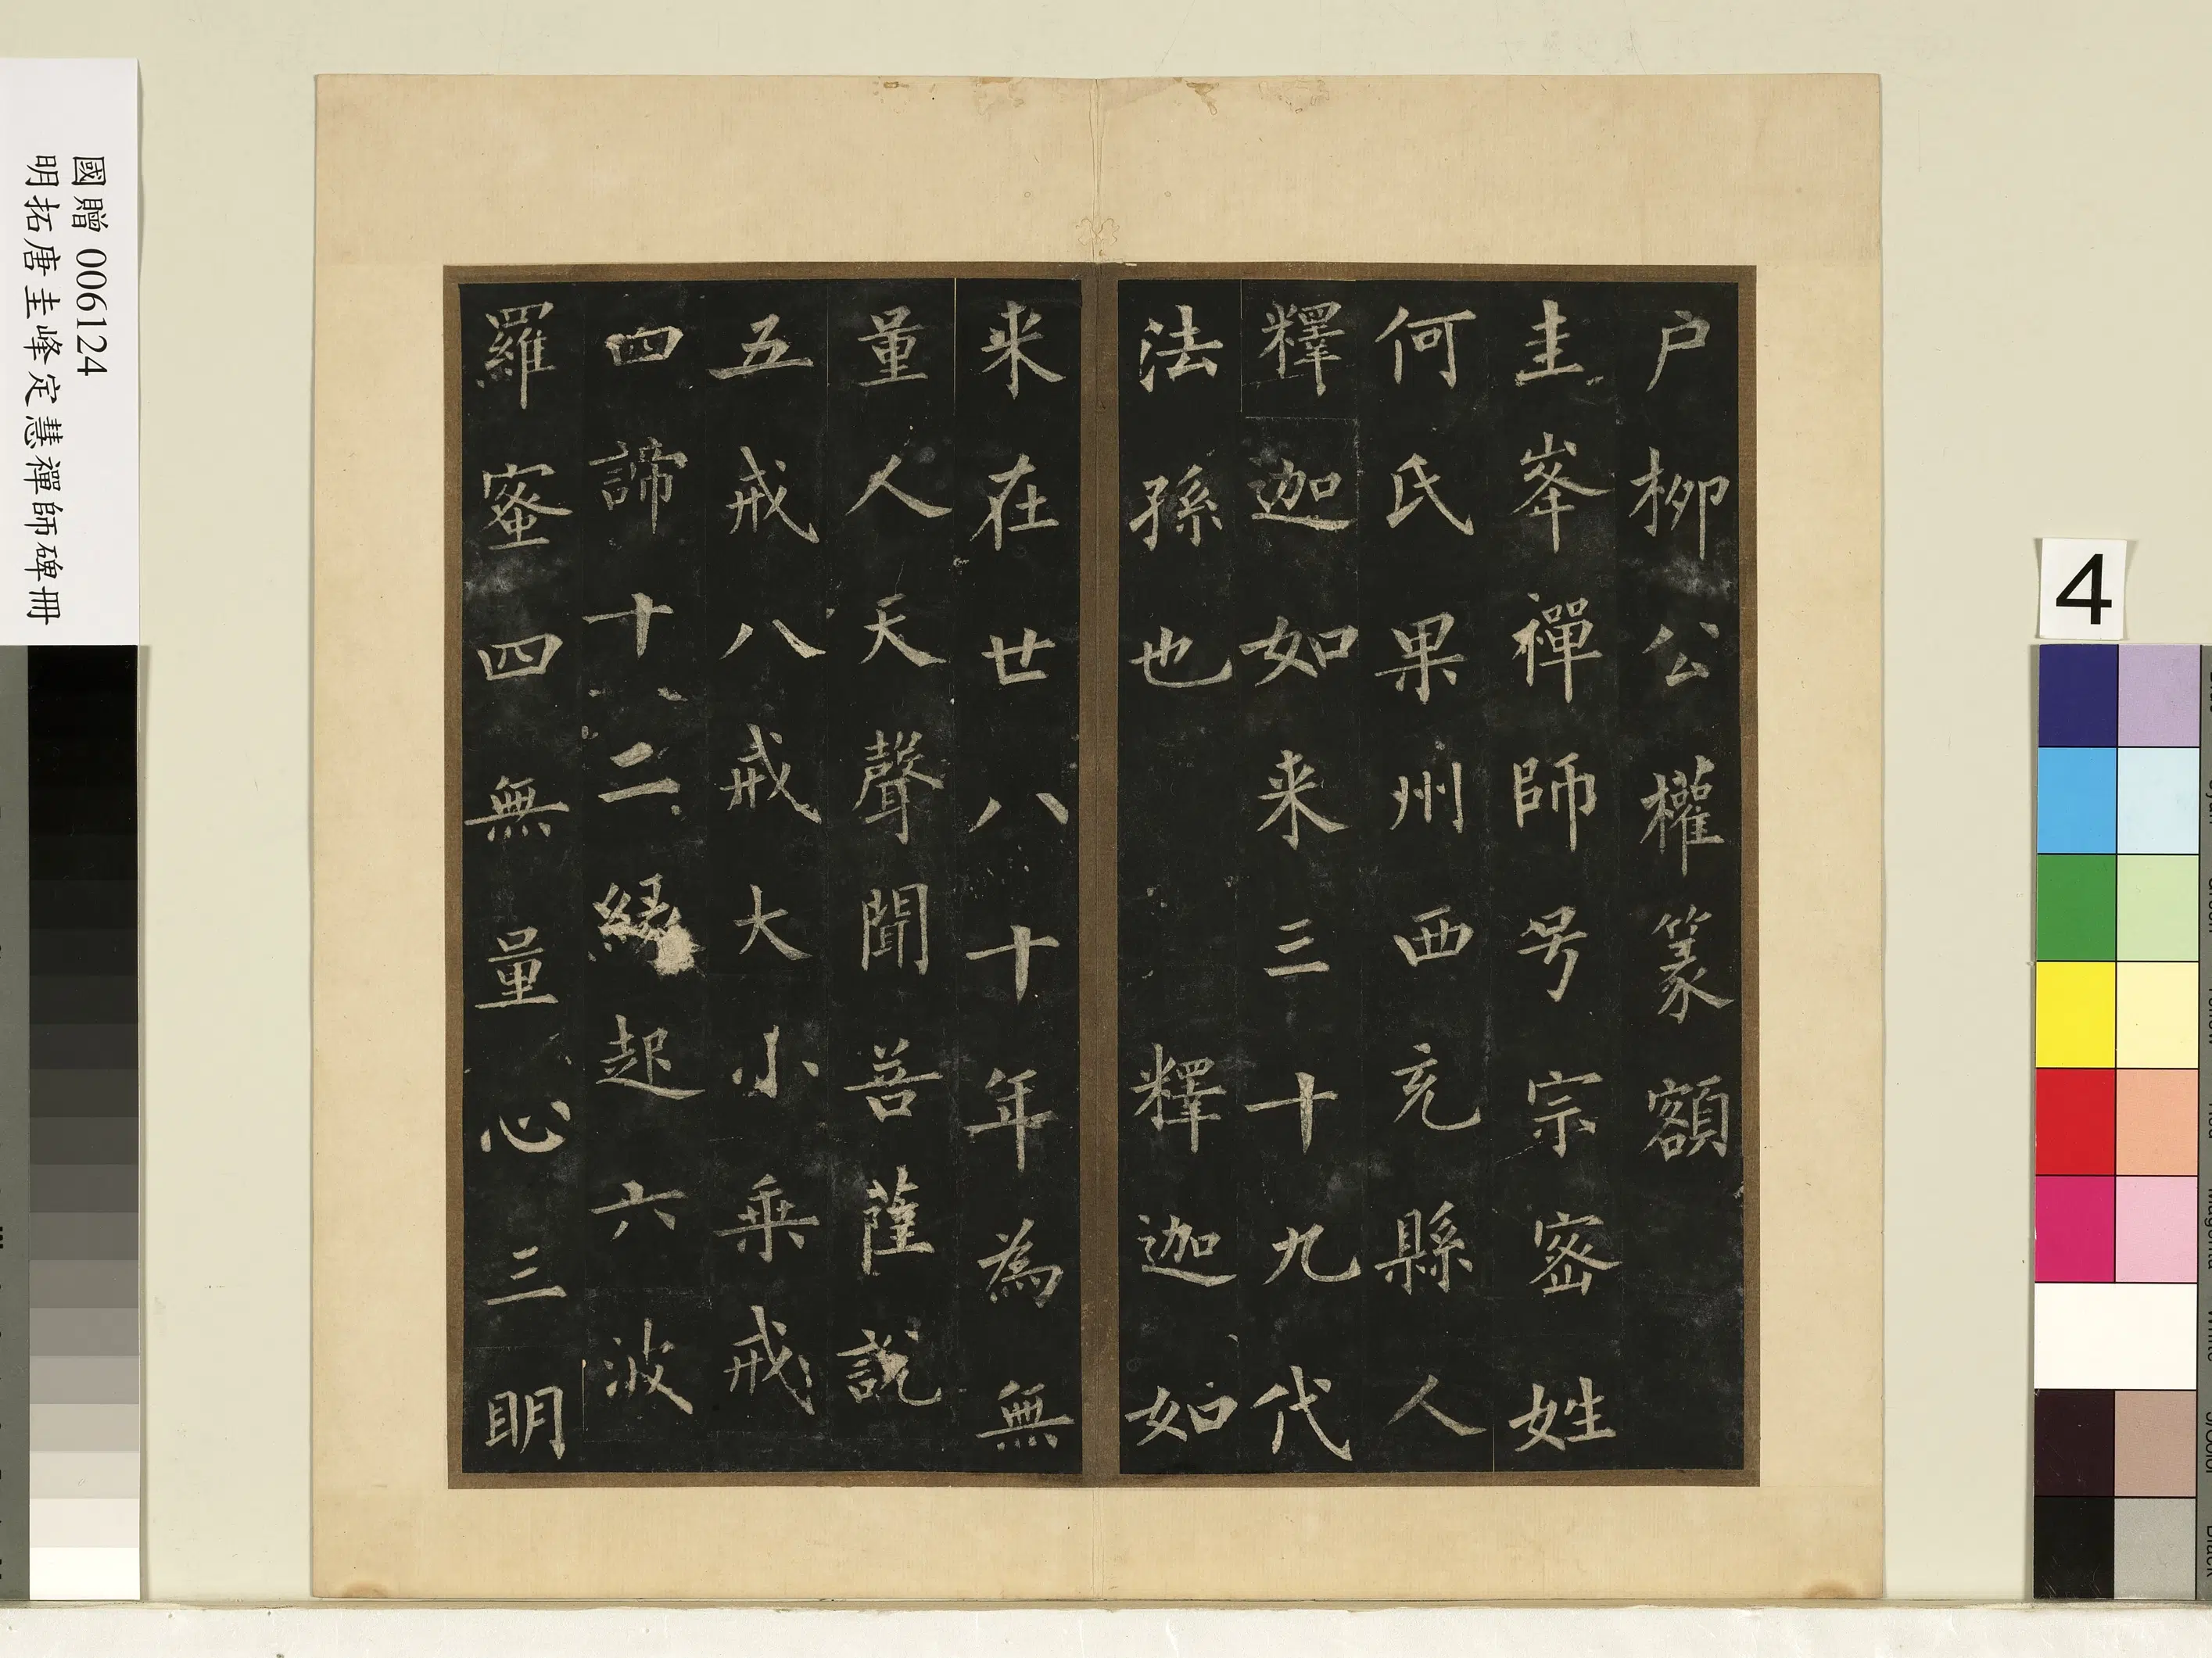 戶柳公權篆額
圭峯禪師号宗密姓
何氏果州西充縣人
釋迦如来三十九代
法孫也 釋迦如
来在世八十年為無
量人天聲聞菩薩說
五戒八戒大小乗戒
四諦十二縁起六波
羅蜜四無量心三明
國贈 006124
明拓唐圭峰定慧禪師碑冊
4